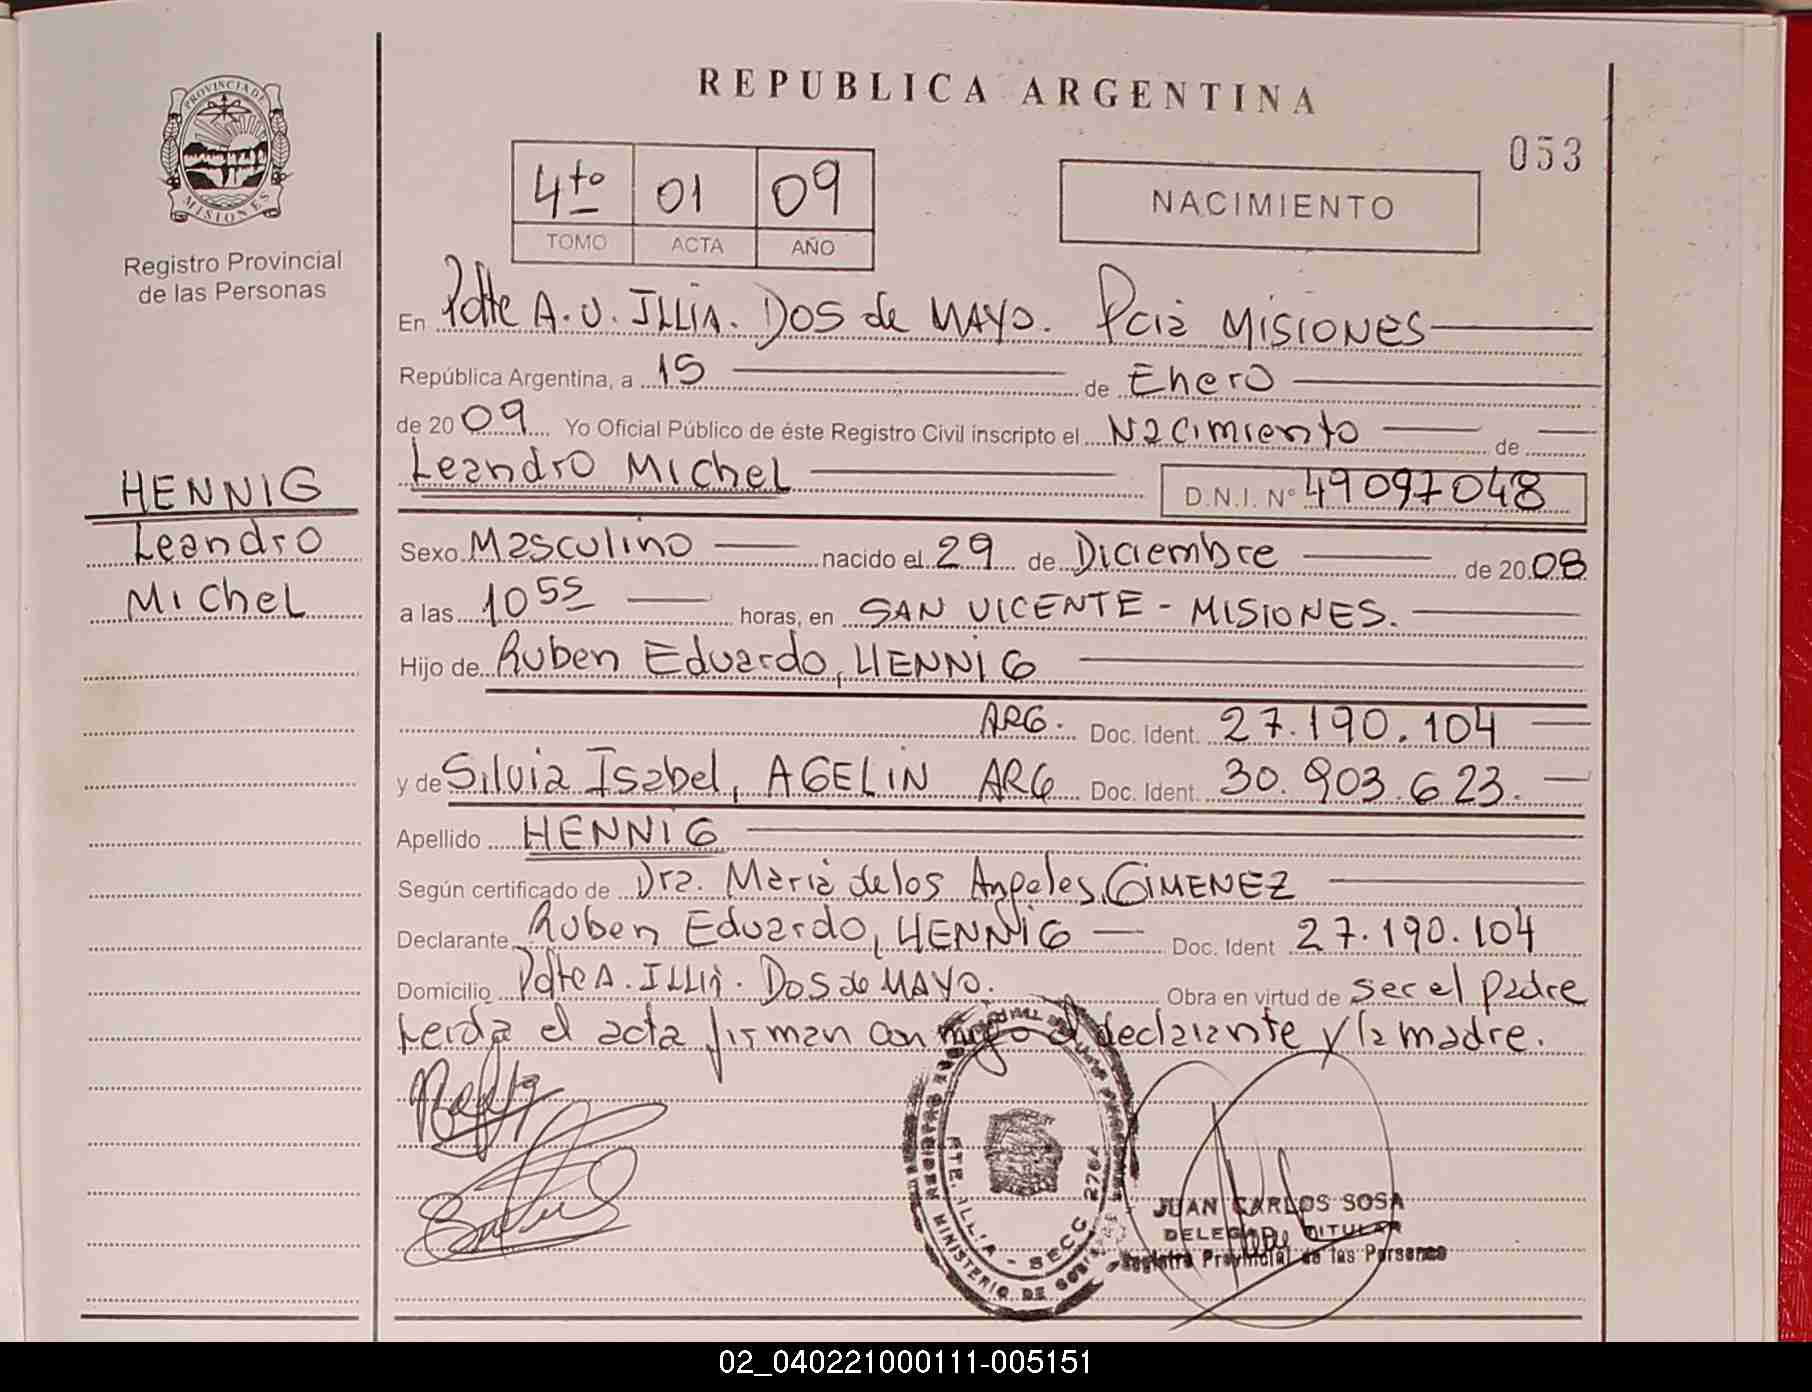 REPUBLICA ARGENTINA
053
PROVINCIA DE
MISIONES
Registro Provincial
de las Personas
4to 01 09
TOMO ACTA AÑO
NACIMIENTO
En Pdte A. U. ILLIA. DOS de MAYO. Pcia MISIONES
República Argentina, a 15 de Enero
de 2009 Yo Oficial Público de éste Registro Civil inscripto el Nacimiento de
Leandro Michel D.N.I. Nº 49097048
HENNIG
Leandro
Michel
Sexo Masculino nacido el 29 de Diciembre de 2008
a las 10 55 horas, en SAN VICENTE - MISIONES.
Hijo de Ruben Eduardo, HENNIG
ARG. Doc. Ident. 27.190.104
y de Silvia Isabel, AGELIN ARG Doc. Ident. 30.903.623.
Apellido HENNIG
Según certificado de Dra. Maria de los Angeles, GIMENEZ
Declarante Ruben Eduardo, HENNIG Doc. Ident 27.190.104
Domicilio Pdte A. ILLIA. DOS de MAYO. Obra en virtud de ser el padre
Leida el acta firman conmigo el declarante y la madre.
PTE. ILLIA - SECC 2764
MINISTERIO DE
JUAN CARLOS SOSA
DELEGADO TITULAR
Registro Provincial de las Personas
02_040221000111-005151